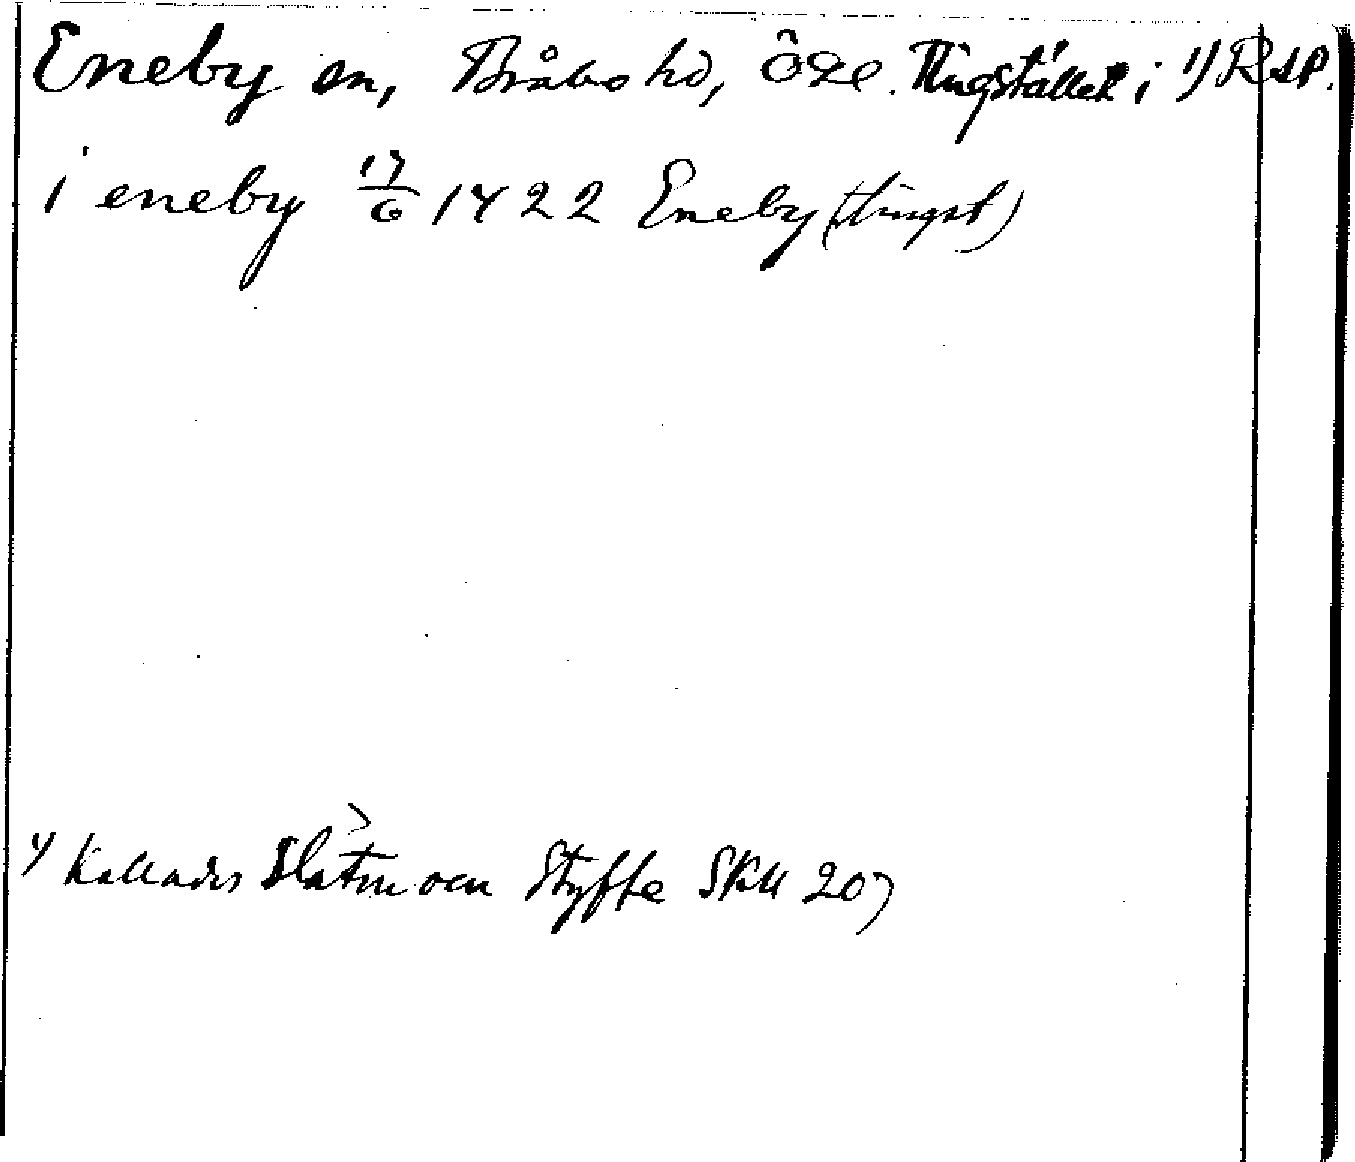 Eneby sn, Bråbo hd, Ögl. Tingstället i 1) RAP.
i eneby 17/6 1422 Eneby (tingst)
1) Kallades Slätmoen Styffe SKU 207